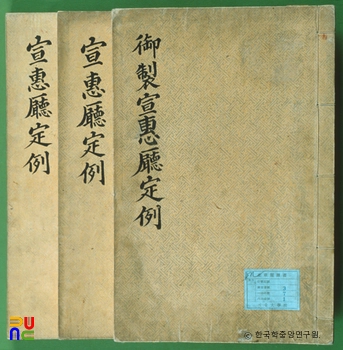 御製宣惠廳定例
宣惠廳定例
宣惠廳定例
한국학중앙연구원